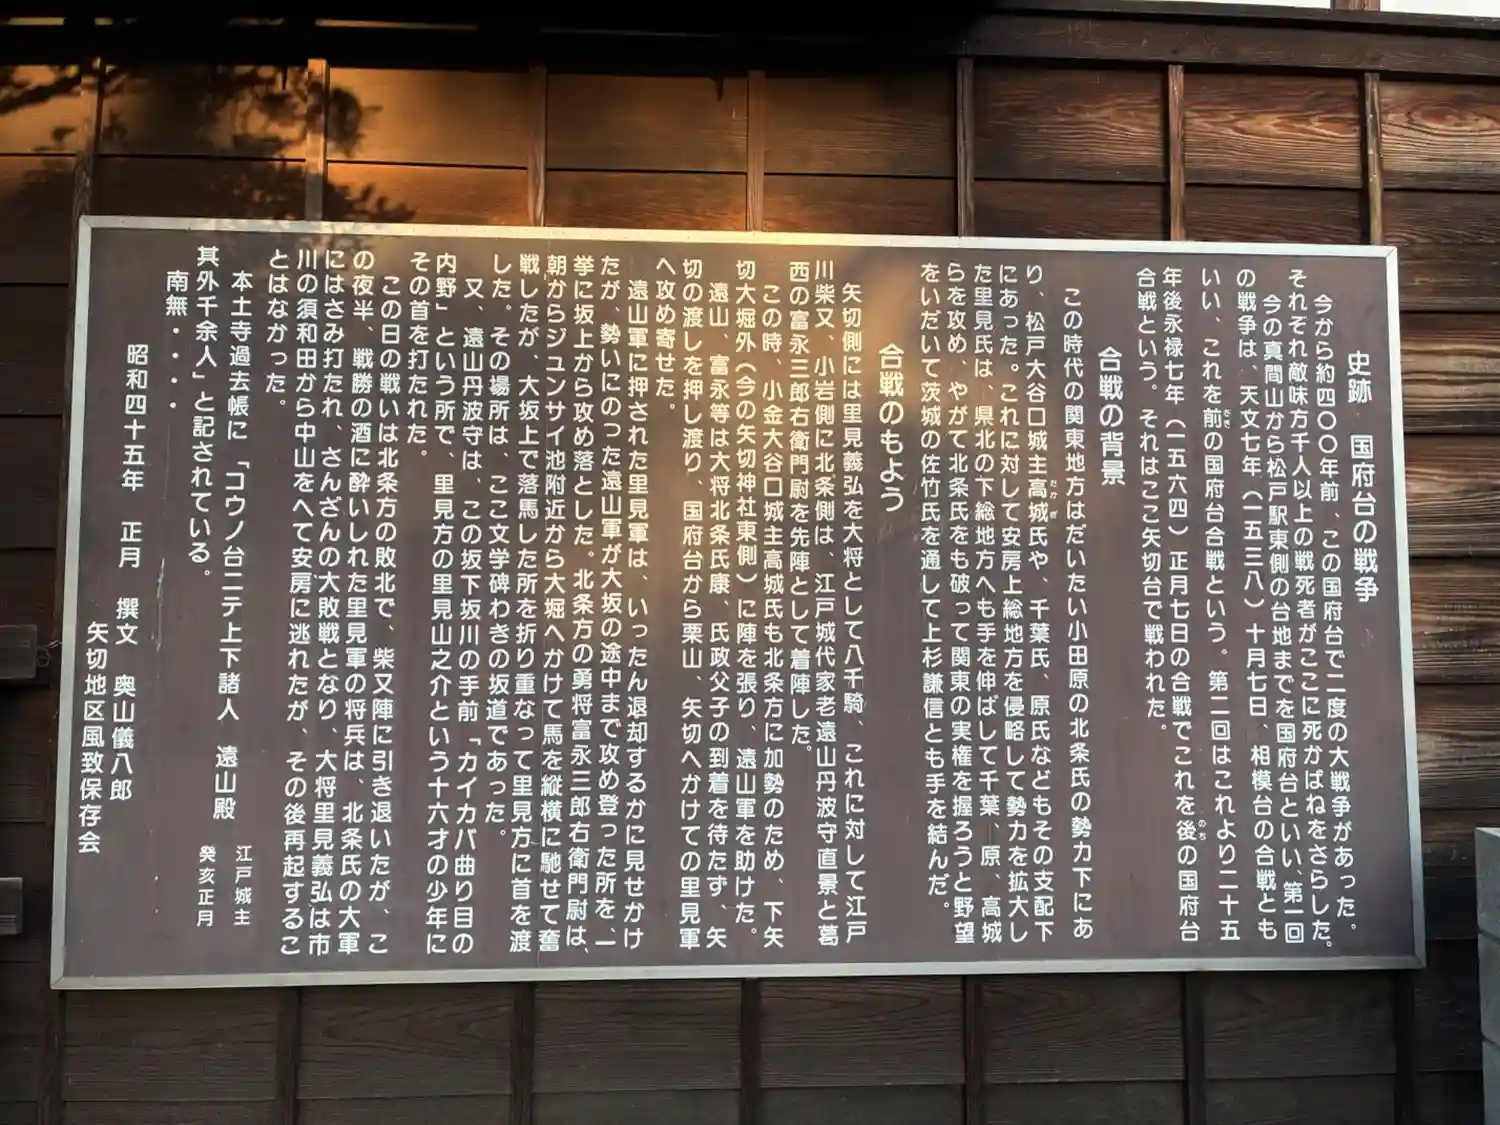 史跡　国府台の戦争
今から約四〇〇年前、この国府台で二度の大戦争があった。
それぞれ敵味方千人以上の戦死者がここに死かばねをさらした。
今の真間山から松戸駅東側の台地までを国府台といい、第一回
の戦争は、天文七年（一五三八）十月七日、相模台の合戦とも
いい、これを前の国府台合戦という。第二回はこれより二十五
さき
年後永禄七年（一五六四）正月七日の合戦でこれを後の国府台
のち
合戦という。それはここ矢切台で戦われた。
合戦の背景
この時代の関東地方はだいたい小田原の北条氏の勢力下にあ
り、松戸大谷口城主高城氏や、千葉氏、原氏などもその支配下
たかぎ
にあった。これに対して安房上総地方を侵略して勢力を拡大し
た里見氏は、県北の下総地方へも手を伸ばして千葉、原、高城
らを攻め、やがて北条氏をも破って関東の実権を握ろうと野望
をいだいて茨城の佐竹氏を通して上杉謙信とも手を結んだ。
合戦のもよう
矢切側には里見義弘を大将として八千騎、これに対して江戸
川柴又、小岩側に北条側は、江戸城代家老遠山丹波守直景と葛
西の富永三郎右衛門尉を先陣として着陣した。
この時、小金大谷口城主高城氏も北条方に加勢のため、下矢
切大堀外（今の矢切神社東側）に陣を張り、遠山軍を助けた。
遠山、富永等は大将北条氏康、氏政父子の到着を待たず、矢
切の渡しを押し渡り、国府台から栗山、矢切へかけての里見軍
へ攻め寄せた。
遠山軍に押された里見軍は、いったん退却するかに見せかけ
たが、勢いにのった遠山軍が大坂の途中まで攻め登った所を、一
挙に坂上から攻め落とした。北条方の勇将富永三郎右衛門尉は、
朝からジュンサイ池附近から大堀へかけて馬を縦横に馳せて奮
戦したが、大坂上で落馬した所を折り重なって里見方に首を渡
した。その場所は、ここ文学碑わきの坂道であった。
又、遠山丹波守は、この坂下坂川の手前「カイカバ曲り目の
内野」という所で、里見方の里見山之介という十六才の少年に
その首を打たれた。
この日の戦いは北条方の敗北で、柴又陣に引き退いたが、こ
の夜半、戦勝の酒に酔いしれた里見軍の将兵は、北条氏の大軍
にはさみ打たれ、さんざんの大敗戦となり、大将里見義弘は市
川の須和田から中山をへて安房に逃れたが、その後再起するこ
とはなかった。
本土寺過去帳に「コウノ台ニテ上下諸人　遠山殿　江戸城主
其外千余人」と記されている。　癸亥正月
南無・・・・
昭和四十五年　正月　撰文　奥山儀八郎
矢切地区風致保存会